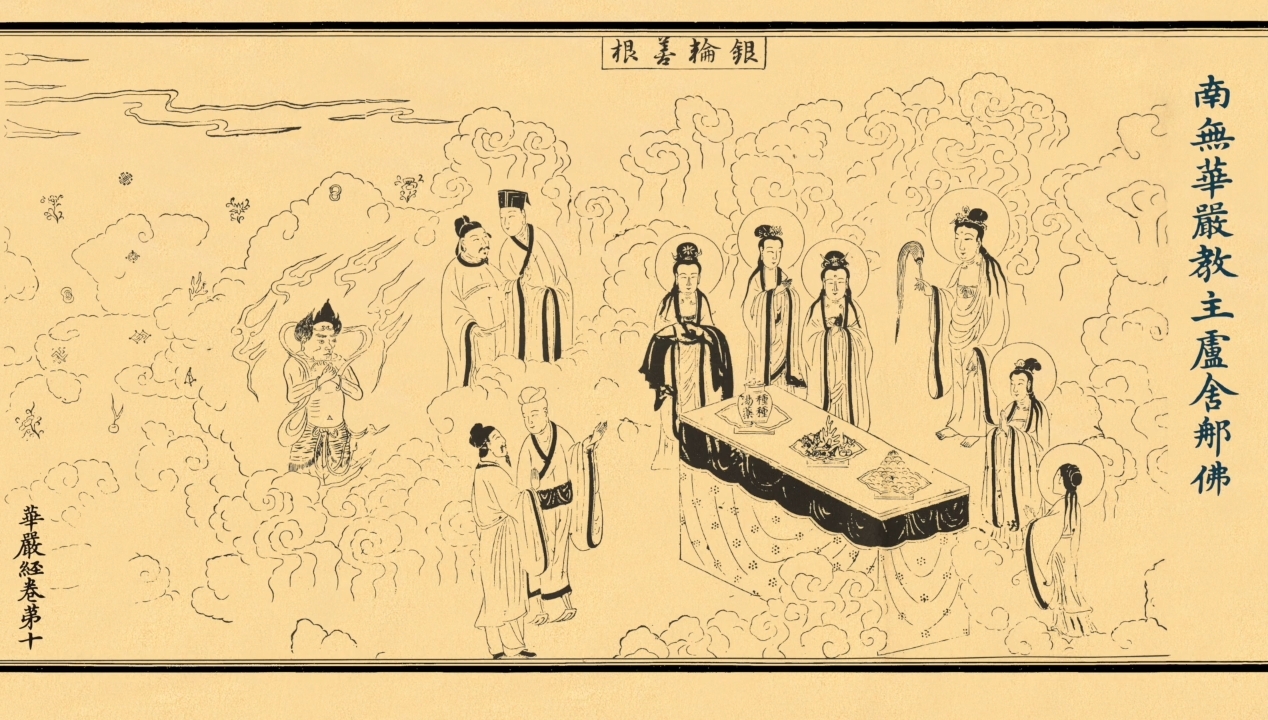 南無華嚴教主盧舍郍佛
銀輪善根
種種
湯藥
華嚴経卷苐十